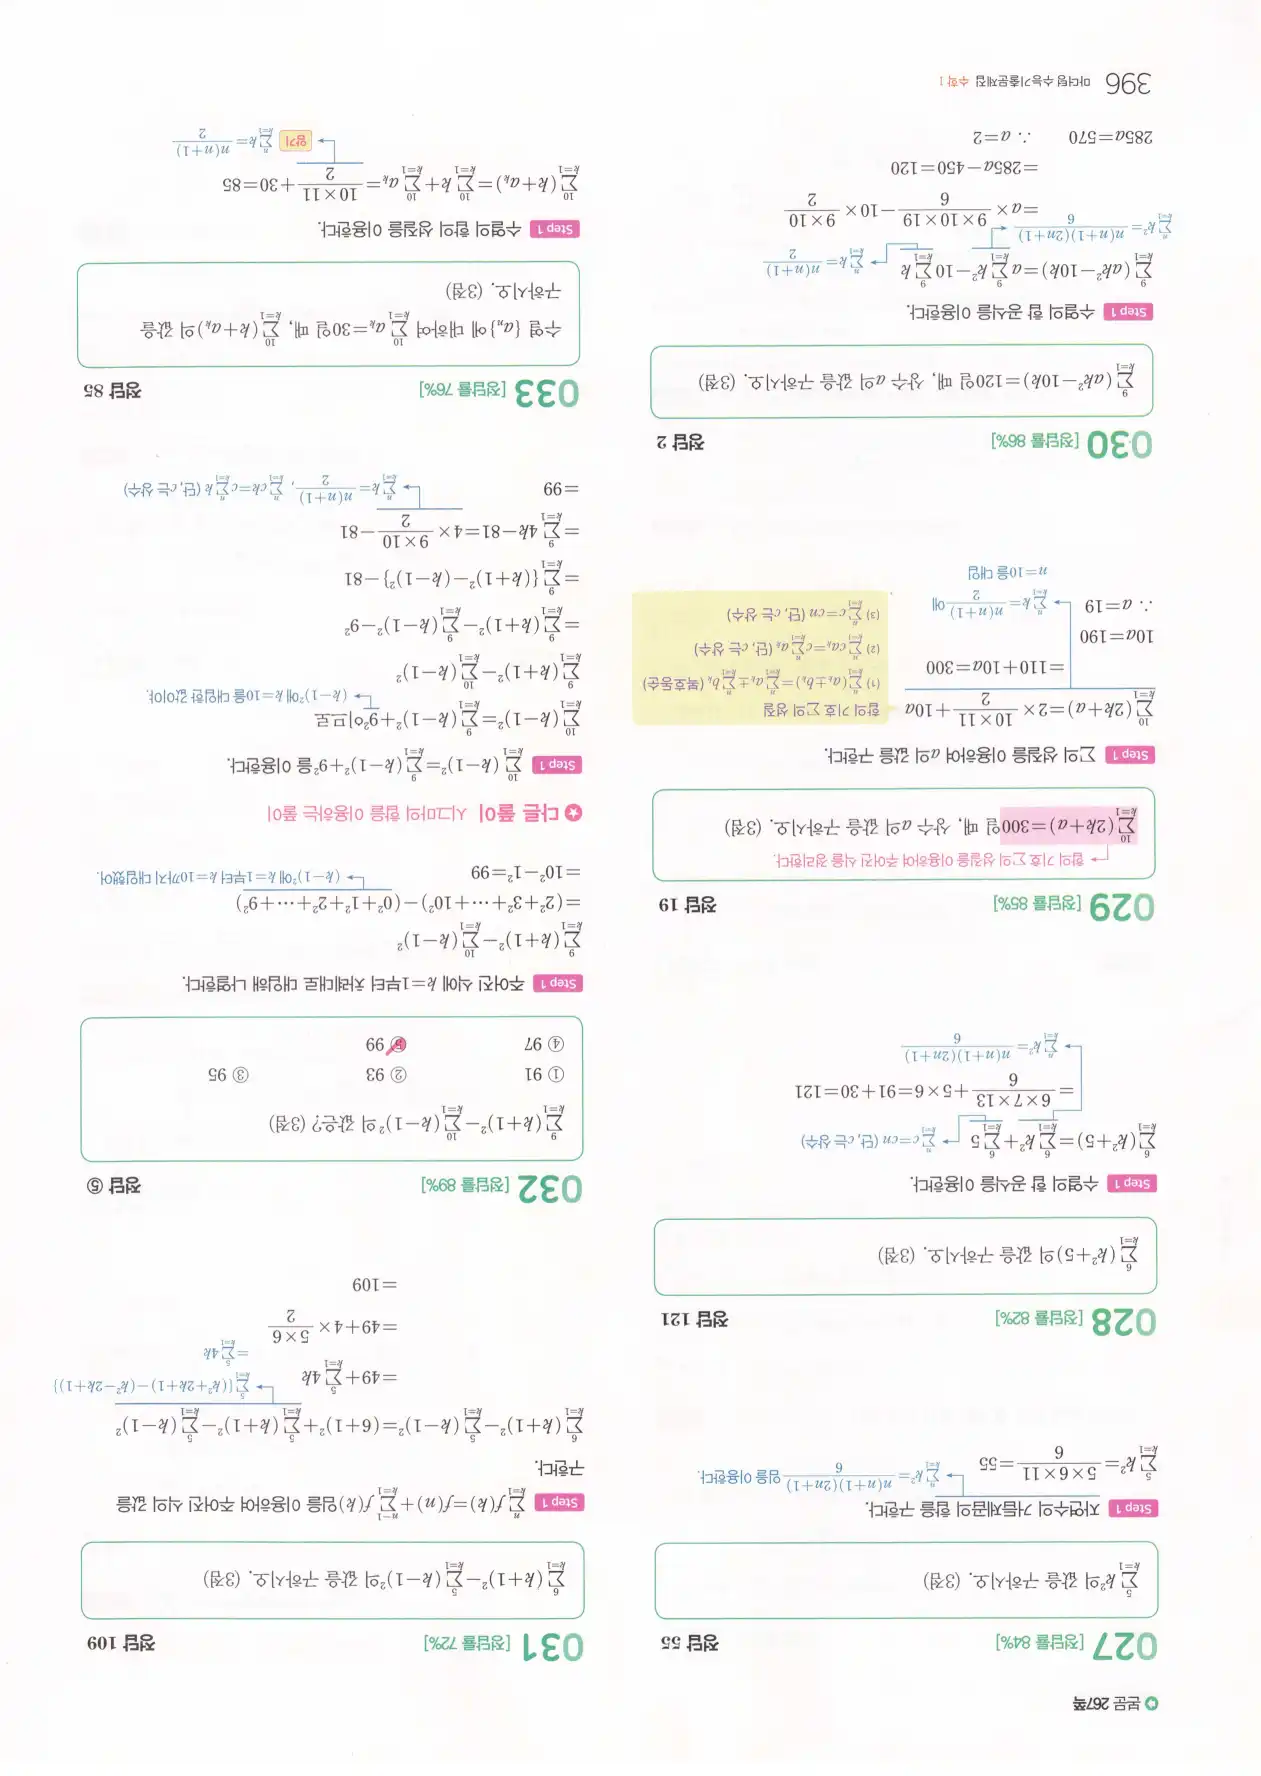 문끔 267쪽
027 [정답률 84%] 정답 55
$\sum_{k=1}^{5} k^2$의 값을 구하시오. (3점)
Step 1 자연수의 거듭제곱의 합을 구한다.
$\sum_{k=1}^{5} k^2=\frac{5×6×11}{6}=55$
$\sum_{k=1}^{n} k^2=\frac{n(n+1)(2n+1)}{6}$임을 이용한다.
028 [정답률 82%] 정답 121
$\sum_{k=1}^{6} (k^2+5)$의 값을 구하시오. (3점)
Step 1 수열의 합 공식을 이용한다.
$\sum_{k=1}^{6} (k^2+5)=\sum_{k=1}^{6} k^2+\sum_{k=1}^{6} 5$
$\sum_{k=1}^{n} c=cn$ (단, c는 상수)
$=\frac{6×7×13}{6}+5×6=91+30=121$
$\sum_{k=1}^{n} k^2=\frac{n(n+1)(2n+1)}{6}$
029 [정답률 85%] 정답 19
합의 기호 ∑의 성질을 이용하여 주어진 식을 정리한다.
$\sum_{k=1}^{10} (2k+a)=300$일 때, 상수 a의 값을 구하시오. (3점)
Step 1 ∑의 성질을 이용하여 a의 값을 구한다.
$\sum_{k=1}^{10} (2k+a)=2×\frac{10×11}{2}+10a$
$=110+10a=300$
$10a=190$
$∴ a=19$
$\sum_{k=1}^{n} k=\frac{n(n+1)}{2}$에
n=10을 대입
합의 기호 ∑의 성질
(1) $\sum_{k=1}^{n} (a_k±b_k)=\sum_{k=1}^{n} a_k±\sum_{k=1}^{n} b_k$ (복호동순)
(2) $\sum_{k=1}^{n} ca_k=c\sum_{k=1}^{n} a_k$ (단, c는 상수)
(3) $\sum_{k=1}^{n} c=cn$ (단, c는 상수)
030 [정답률 86%] 정답 2
$\sum_{k=1}^{9} (ak^2-10k)=120$일 때, 상수 a의 값을 구하시오. (3점)
Step 1 수열의 합 공식을 이용한다.
$\sum_{k=1}^{9} (ak^2-10k)=a\sum_{k=1}^{9} k^2-10\sum_{k=1}^{9} k$
$\sum_{k=1}^{n} k=\frac{n(n+1)}{2}$
$\sum_{k=1}^{n} k^2=\frac{n(n+1)(2n+1)}{6}$
$=a×\frac{9×10×19}{6}-10×\frac{9×10}{2}$
$=285a-450=120$
$285a=570$ $∴ a=2$
031 [정답률 72%] 정답 109
$\sum_{k=1}^{6} (k+1)^2-\sum_{k=1}^{5} (k-1)^2$의 값을 구하시오. (3점)
Step 1 $\sum_{k=1}^{n} f(k)=f(n)+\sum_{k=1}^{n-1} f(k)$임을 이용하여 주어진 식의 값을
구한다.
$\sum_{k=1}^{6} (k+1)^2-\sum_{k=1}^{5} (k-1)^2=(6+1)^2+\sum_{k=1}^{5} (k+1)^2-\sum_{k=1}^{5} (k-1)^2$
$\sum_{k=1}^{5} \{(k^2+2k+1)-(k^2-2k+1)\}$
$=\sum_{k=1}^{5} 4k$
$=49+\sum_{k=1}^{5} 4k$
$=49+4×\frac{5×6}{2}$
$=109$
032 [정답률 89%] 정답 ⑤
$\sum_{k=1}^{9} (k+1)^2-\sum_{k=1}^{10} (k-1)^2$의 값은? (3점)
① 91 ② 93 ③ 95
④ 97 ⑤ 99
Step 1 주어진 식에 k=1부터 차례대로 대입해 나열한다.
$\sum_{k=1}^{9} (k+1)^2-\sum_{k=1}^{10} (k-1)^2$
$=(2^2+3^2+⋯+10^2)-(0^2+1^2+2^2+⋯+9^2)$
$(k-1)^2$에 k=1부터 k=10까지 대입했어.
$=10^2-1^2=99$
다른 풀이 시그마의 합을 이용하는 풀이
Step 1 $\sum_{k=1}^{10} (k-1)^2=\sum_{k=1}^{9} (k-1)^2+9^2$를 이용한다.
$\sum_{k=1}^{10} (k-1)^2=\sum_{k=1}^{9} (k-1)^2+9^2$이므로
$(k-1)^2$에 k=10을 대입한 값이야.
$\sum_{k=1}^{9} (k+1)^2-\sum_{k=1}^{10} (k-1)^2$
$=\sum_{k=1}^{9} (k+1)^2-\sum_{k=1}^{9} (k-1)^2-9^2$
$=\sum_{k=1}^{9} \{(k+1)^2-(k-1)^2\}-81$
$=\sum_{k=1}^{9} 4k-81=4×\frac{9×10}{2}-81$
$=99$
$\sum_{k=1}^{n} k=\frac{n(n+1)}{2}$, $\sum_{k=1}^{n} ck=c\sum_{k=1}^{n} k$ (단, c는 상수)
033 [정답률 76%] 정답 85
수열 $\{a_n\}$에 대하여 $\sum_{k=1}^{10} a_k=30$일 때, $\sum_{k=1}^{10} (k+a_k)$의 값을
구하시오. (3점)
Step 1 수열의 합의 성질을 이용한다.
$\sum_{k=1}^{10} (k+a_k)=\sum_{k=1}^{10} k+\sum_{k=1}^{10} a_k=\frac{10×11}{2}+30=85$
암기 $\sum_{k=1}^{n} k=\frac{n(n+1)}{2}$
396 마더텅 수능기출문제집 수학 I